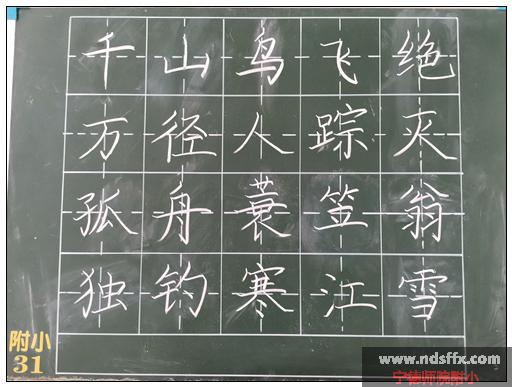 千山鸟飞绝
万径人踪灭
孤舟蓑笠翁
独钓寒江雪
附小
31
www.ndsffx.com
宁德师院附小